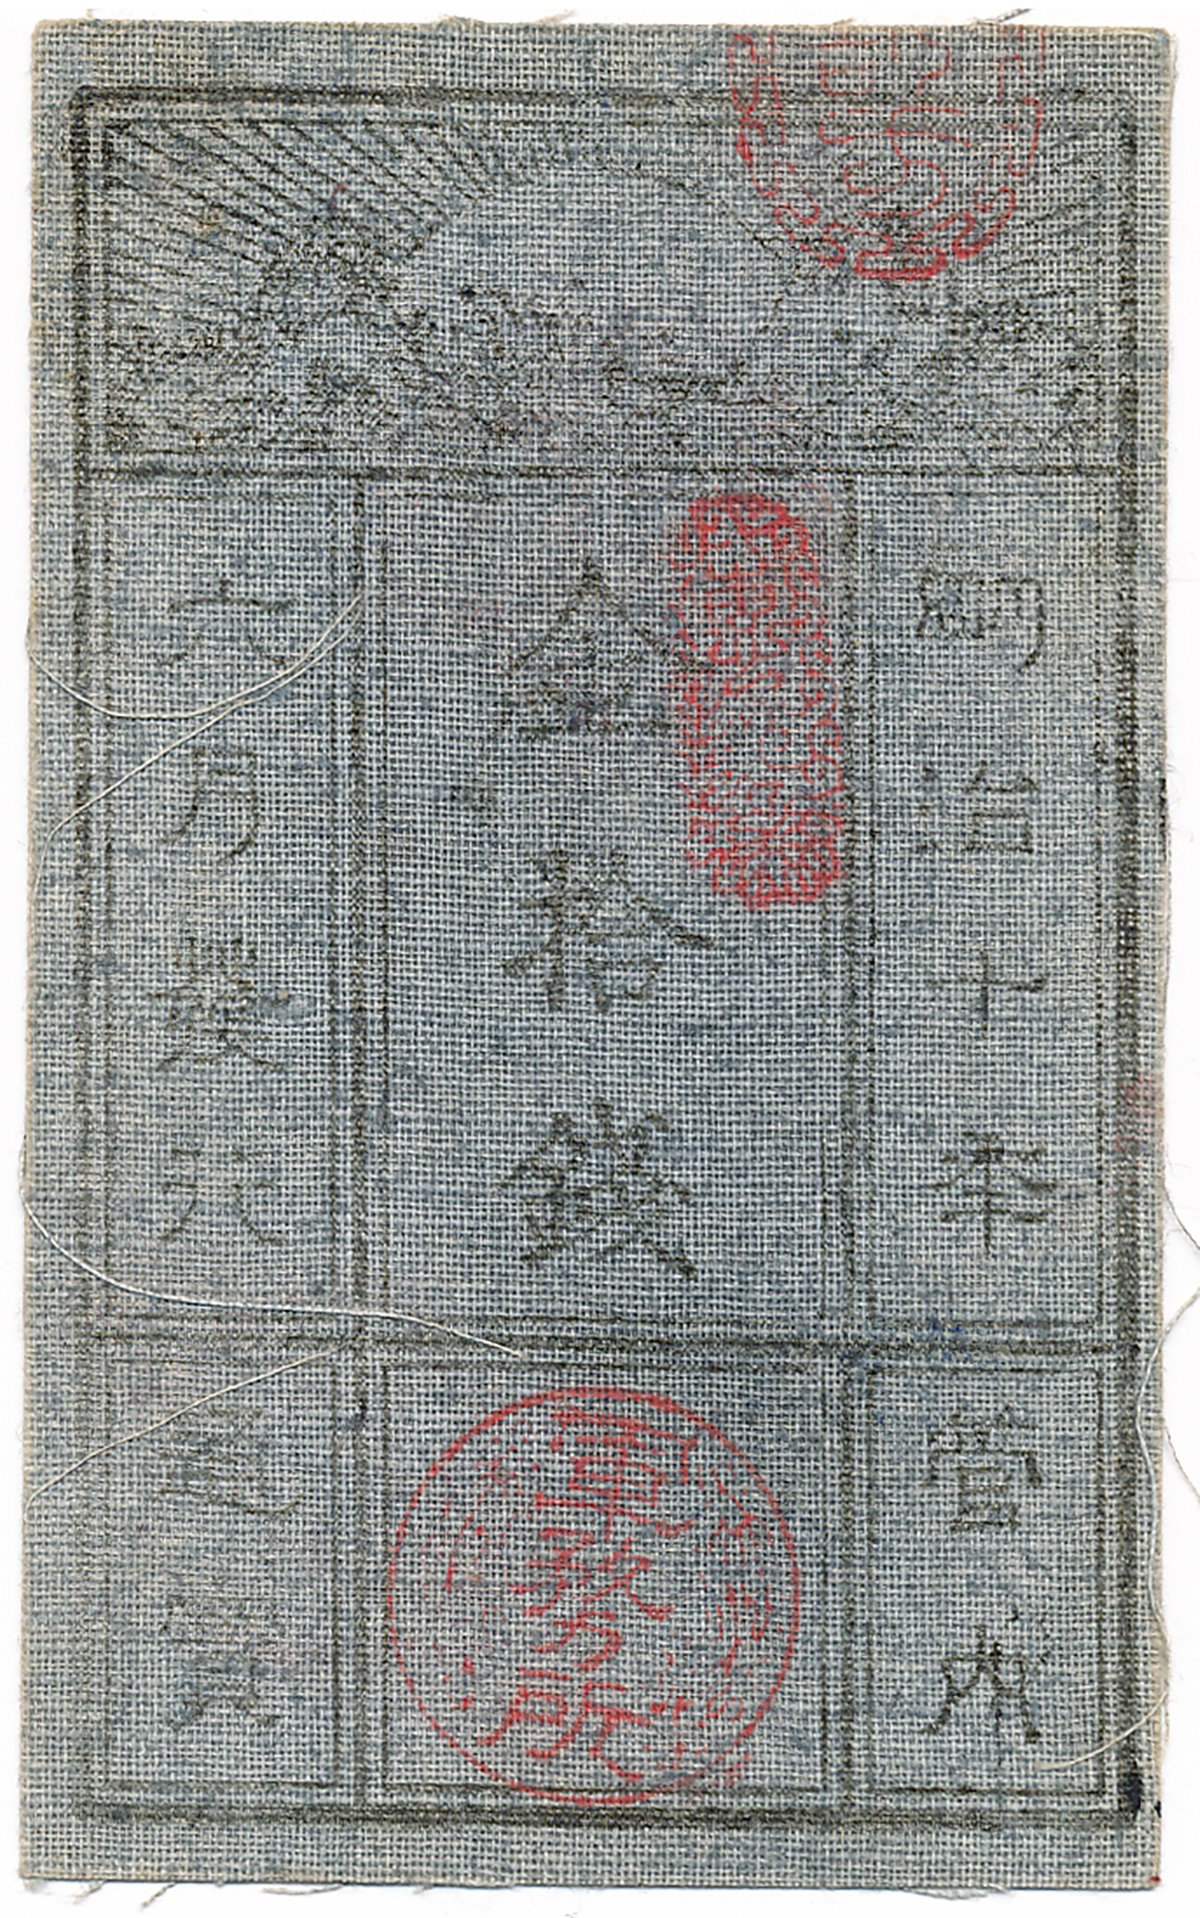 明治十年
金拾錢
六月發行
管内
軍務所
通寳